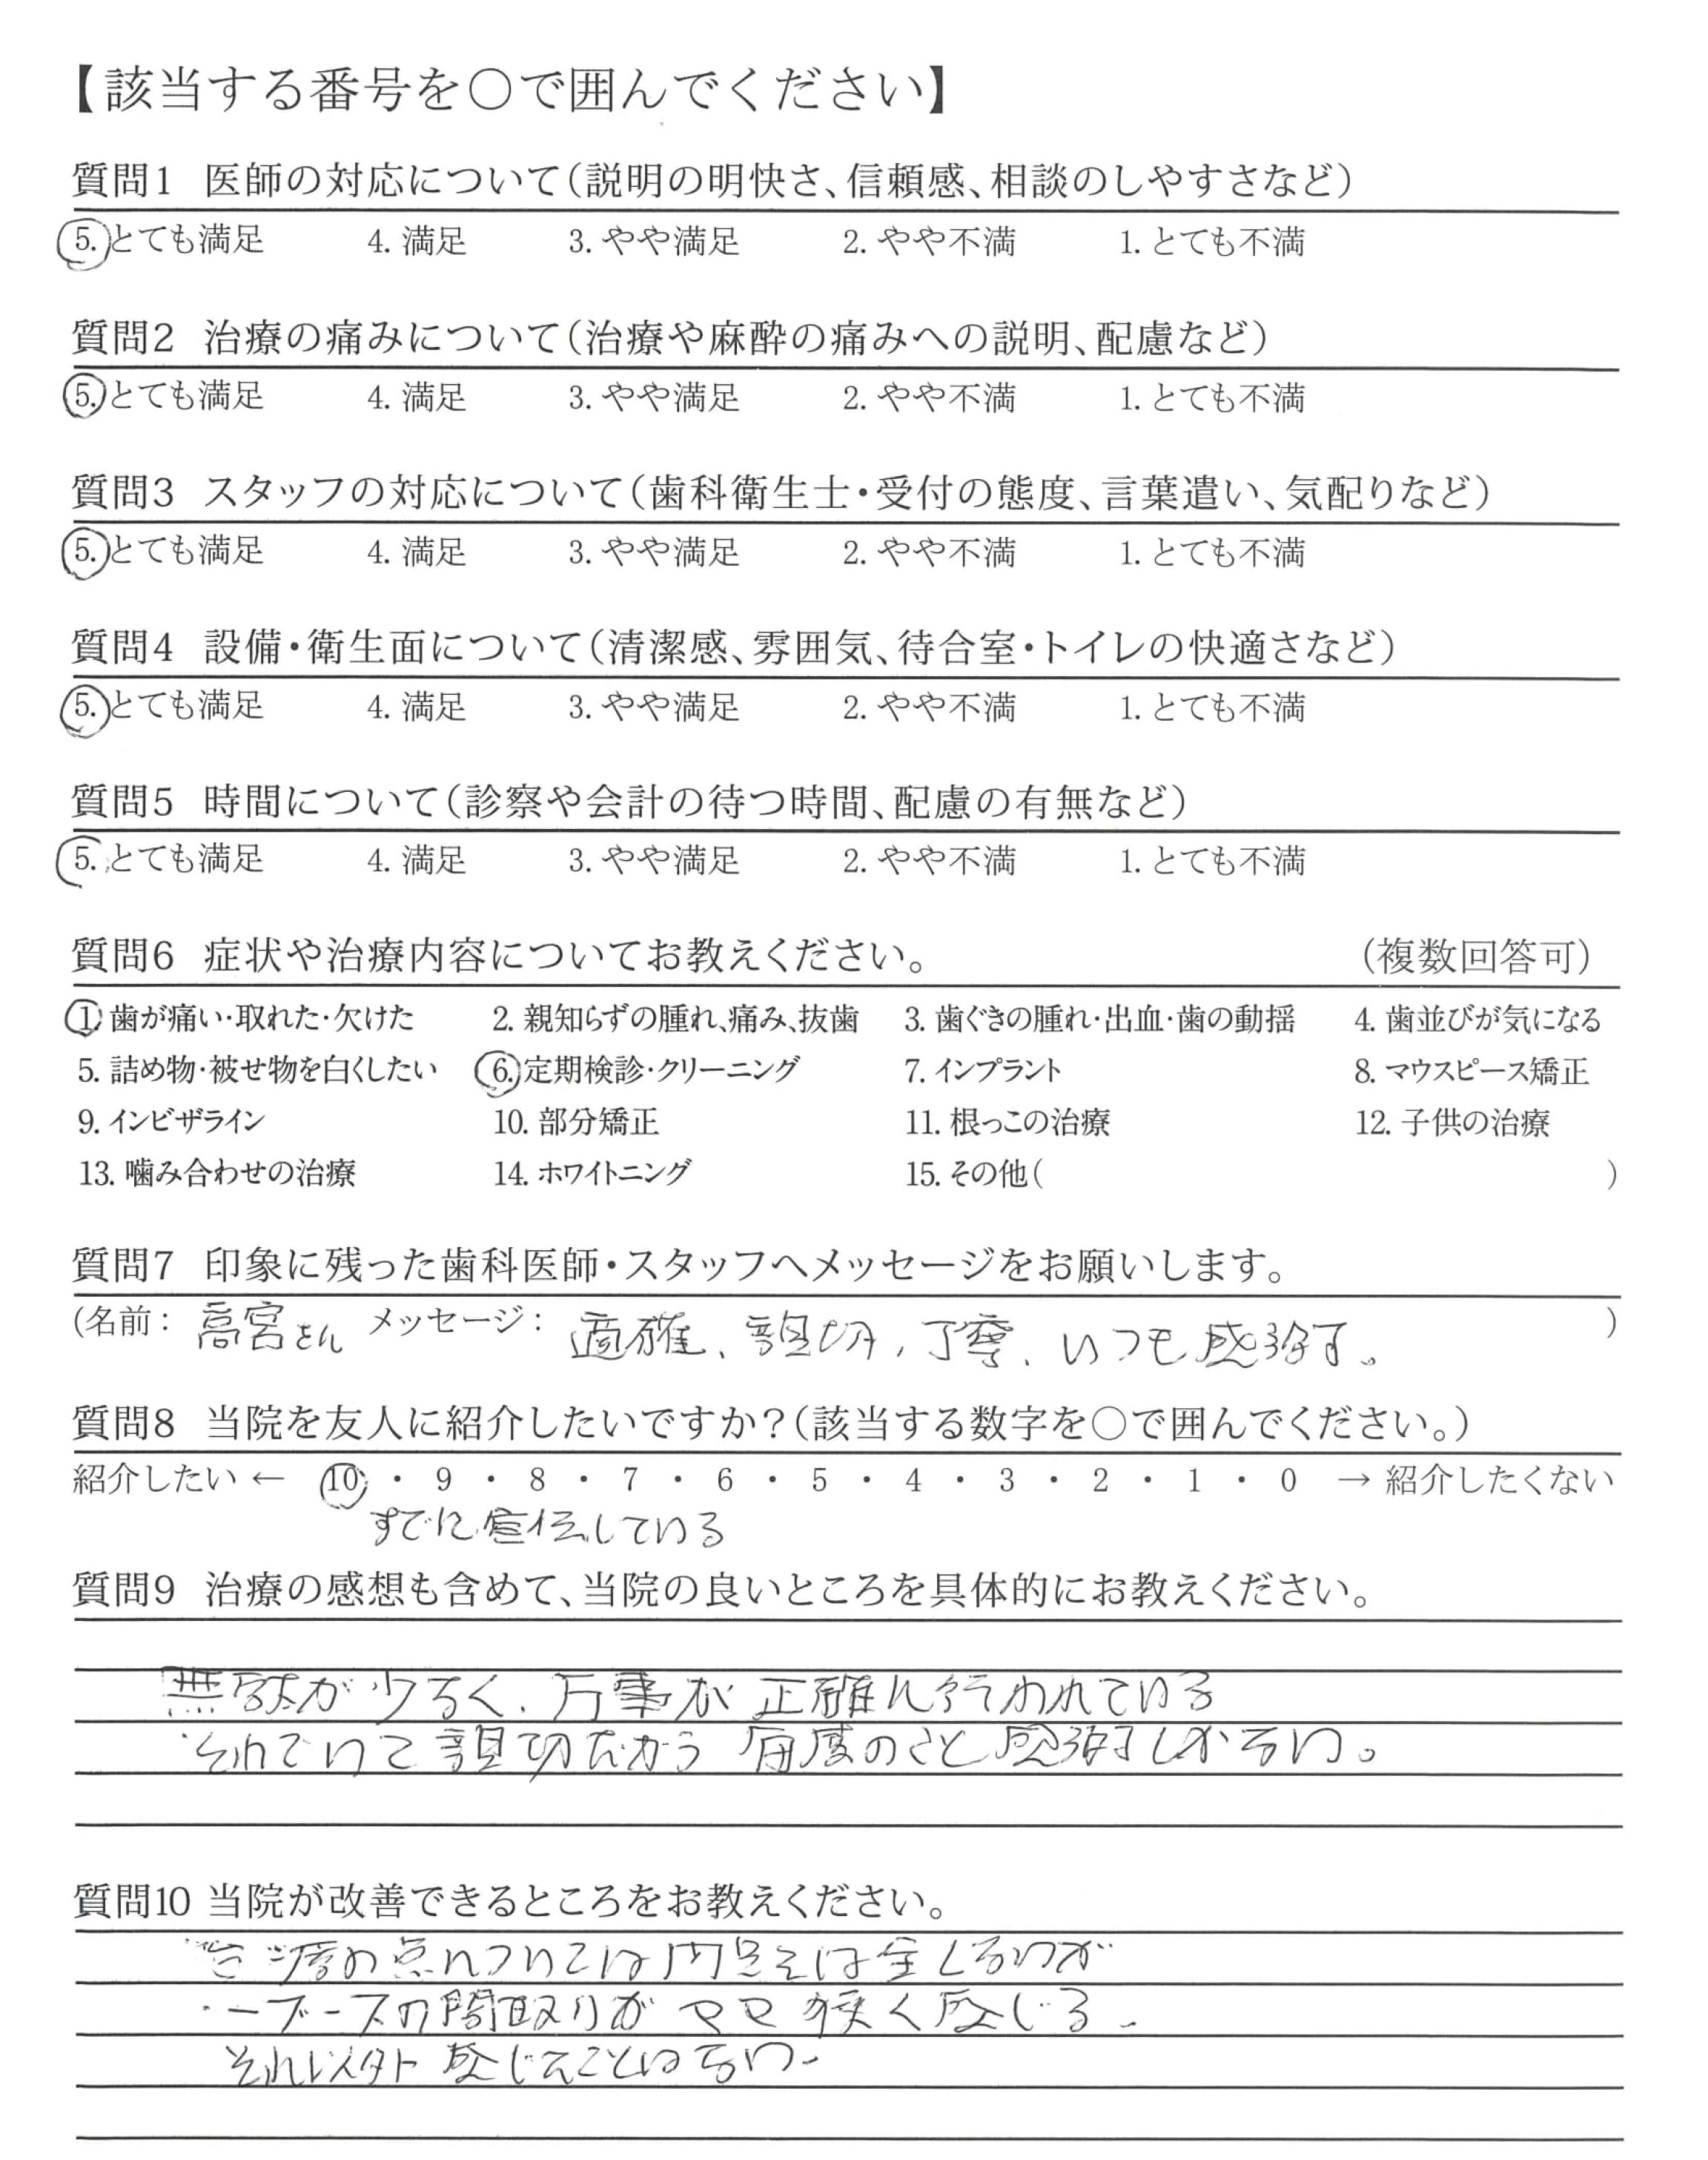 【該当する番号を○で囲んでください】
質問1 医師の対応について(説明の明快さ、信頼感、相談のしやすさなど)
5. とても満足 4. 満足 3. やや満足 2. やや不満 1. とても不満
質問2 治療の痛みについて(治療や麻酔の痛みへの説明、配慮など)
5. とても満足 4. 満足 3. やや満足 2. やや不満 1. とても不満
質問3 スタッフの対応について(歯科衛生士・受付の態度、言葉遣い、気配りなど)
5. とても満足 4. 満足 3. やや満足 2. やや不満 1. とても不満
質問4 設備・衛生面について(清潔感、雰囲気、待合室・トイレの快適さなど)
5. とても満足 4. 満足 3. やや満足 2. やや不満 1. とても不満
質問5 時間について(診察や会計の待つ時間、配慮の有無など)
5. とても満足 4. 満足 3. やや満足 2. やや不満 1. とても不満
質問6 症状や治療内容についてお教えください。 (複数回答可)
1. 歯が痛い・取れた・欠けた 2. 親知らずの腫れ、痛み、抜歯 3. 歯ぐきの腫れ・出血・歯の動揺 4. 歯並びが気になる
5. 詰め物・被せ物を白くしたい 6. 定期検診・クリーニング 7. インプラント 8. マウスピース矯正
9. インビザライン 10. 部分矯正 11. 根っこの治療 12. 子供の治療
13. 噛み合わせの治療 14. ホワイトニング 15. その他( )
質問7 印象に残った歯科医師・スタッフへメッセージをお願いします。
(名前: 高宮さん メッセージ: 適確、親切、丁寧、いつも感謝す。 )
質問8 当院を友人に紹介したいですか?(該当する数字を○で囲んでください。)
紹介したい ← 10 ・ 9 ・ 8 ・ 7 ・ 6 ・ 5 ・ 4 ・ 3 ・ 2 ・ 1 ・ 0 → 紹介したくない
すでに宣伝している
質問9 治療の感想も含めて、当院の良いところを具体的にお教えください。
無駄が少なく、万事が正確に行われている
それでいて親切だから毎度のこと感謝しかない。
質問10 当院が改善できるところをお教えください。
の点については
一ブースの間取りがやや狭く感じる。
それ以外感じたことはない。